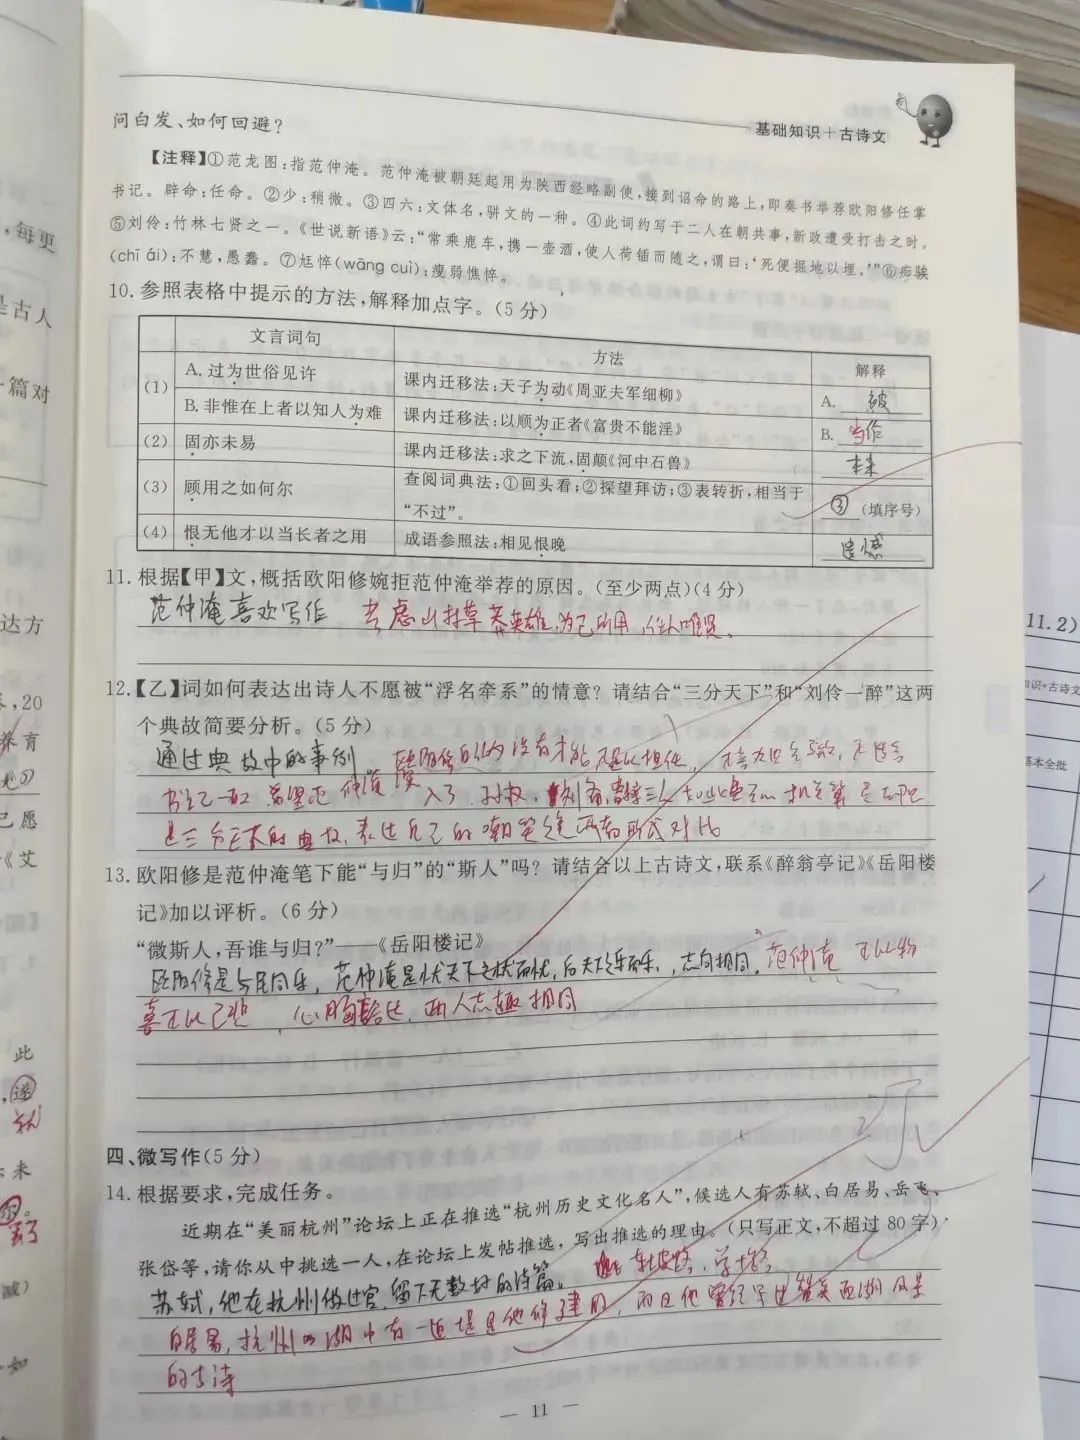 基础知识+古诗文
问白发、如何回避?
【注释】①范龙图:指范仲淹。范仲淹被朝廷起用为陕西经略副使,接到诏命的路上,即奏书举荐欧阳修任掌
书记。辟命:任命。②少:稍微。③四六:文体名,骈文的一种。④此词约写于二人在朝共事,新政遭受打击之时。
⑤刘伶:竹林七贤之一。《世说新语》云:“常乘鹿车,携一壶酒,使人荷锸而随之,谓曰:‘死便掘地以埋。’”⑥痴騃
(chī ái):不慧,愚蠢。⑦尪悴(wāng cuì):瘦弱憔悴。
10.参照表格中提示的方法,解释加点字。(5分)
文言词句 方法 解释
(1) A.过为世俗见许 课内迁移法:天子为动《周亚夫军细柳》 A. 被
B.非惟在上者以知人为难 课内迁移法:以顺为正者《富贵不能淫》 B. 当作
(2) 固亦未易 课内迁移法:求之下流,固颠《河中石兽》 本来
(3) 顾用之如何尔 查阅词典法:①回头看;②探望拜访;③表转折,相当于
“不过”。 ③ (填序号)
(4) 恨无他才以当长者之用 成语参照法:相见恨晚 遗憾
11.根据【甲】文,概括欧阳修婉拒范仲淹举荐的原因。(至少两点)(4分)
范仲淹喜欢写作 考虑 英雄 为己所用
12.【乙】词如何表达出诗人不愿被“浮名牵系”的情意?请结合“三分天下”和“刘伶一醉”这两
个典故简要分析。(5分)
通过典故中的事例 没有才能
孙权、刘备
三分天下的典故,表达自己的嘲笑 两者形成对比
13.欧阳修是范仲淹笔下能“与归”的“斯人”吗?请结合以上古诗文,联系《醉翁亭记》《岳阳楼
记》加以评析。(6分)
“微斯人,吾谁与归?”——《岳阳楼记》
欧阳修是与民同乐,范仲淹是忧天下之忧而忧,后天下之乐而乐,志向相同。范仲淹 不以物
喜不以己悲,心胸豁达,两人志趣相同
四、微写作(5分)
14.根据要求,完成任务。
近期在“美丽杭州”论坛上正在推选“杭州历史文化名人”,候选人有苏轼、白居易、岳飞、
张岱等,请你从中挑选一人,在论坛上发帖推选,写出推选的理由。(只写正文,不超过80字)
苏轼,他在杭州做过官,留下无数好的诗篇。 东坡路,学士路
白居易,杭州西湖中有一道堤是他修建的,而且他曾经写过赞美西湖风景
的古诗
— 11 —
此
未
达方
,每更
是古人
一篇对
,20
养育
己愿
《艾
11.2)